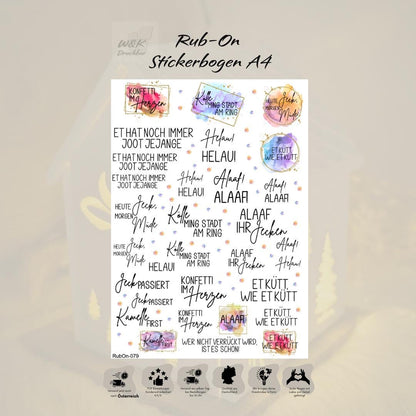 W&K
Druckbar
Rub-On
Stickerbogen A4
KONFETTI
IM
Herzen
Kölle
MING STADT
AM RING
HEUTE Jeck,
MORGEN Müde
ET HAT NOCH IMMER
JOOT JEJANGE
Helau!
HELAU!
ET KÜTT,
WIE ET KÜTT
ET HAT NOCH IMMER
JOOT JEJANGE
ET HAT NOCH IMMER
JOOT JEJANGE
Helau!
HELAU!
Alaaf!
ALAAF!
Alaaf!
ALAAF!
HEUTE Jeck,
MORGEN Müde
Kölle
MING STADT
AM RING
ALAAF
IHR Jecken
HEUTE Jeck,
MORGEN Müde
HELAU!
Kölle
MING STADT
AM RING
ALAAF
IHR Jecken
Alaaf!
Helau!
Jeck PASSIERT
Jeck PASSIERT
KONFETTI
IM
Herzen
ET KÜTT,
WIE ET KÜTT
Kamelle
FIRST
KONFETTI
IM
Herzen
ALAAF!
ET KÜTT,
WIE ET KÜTT
Kamelle
FIRST
WER NICHT VERRÜCKT WIRD,
IST ES SCHON!
ET KÜTT,
WIE ET KÜTT
RubOn-079
Österreich